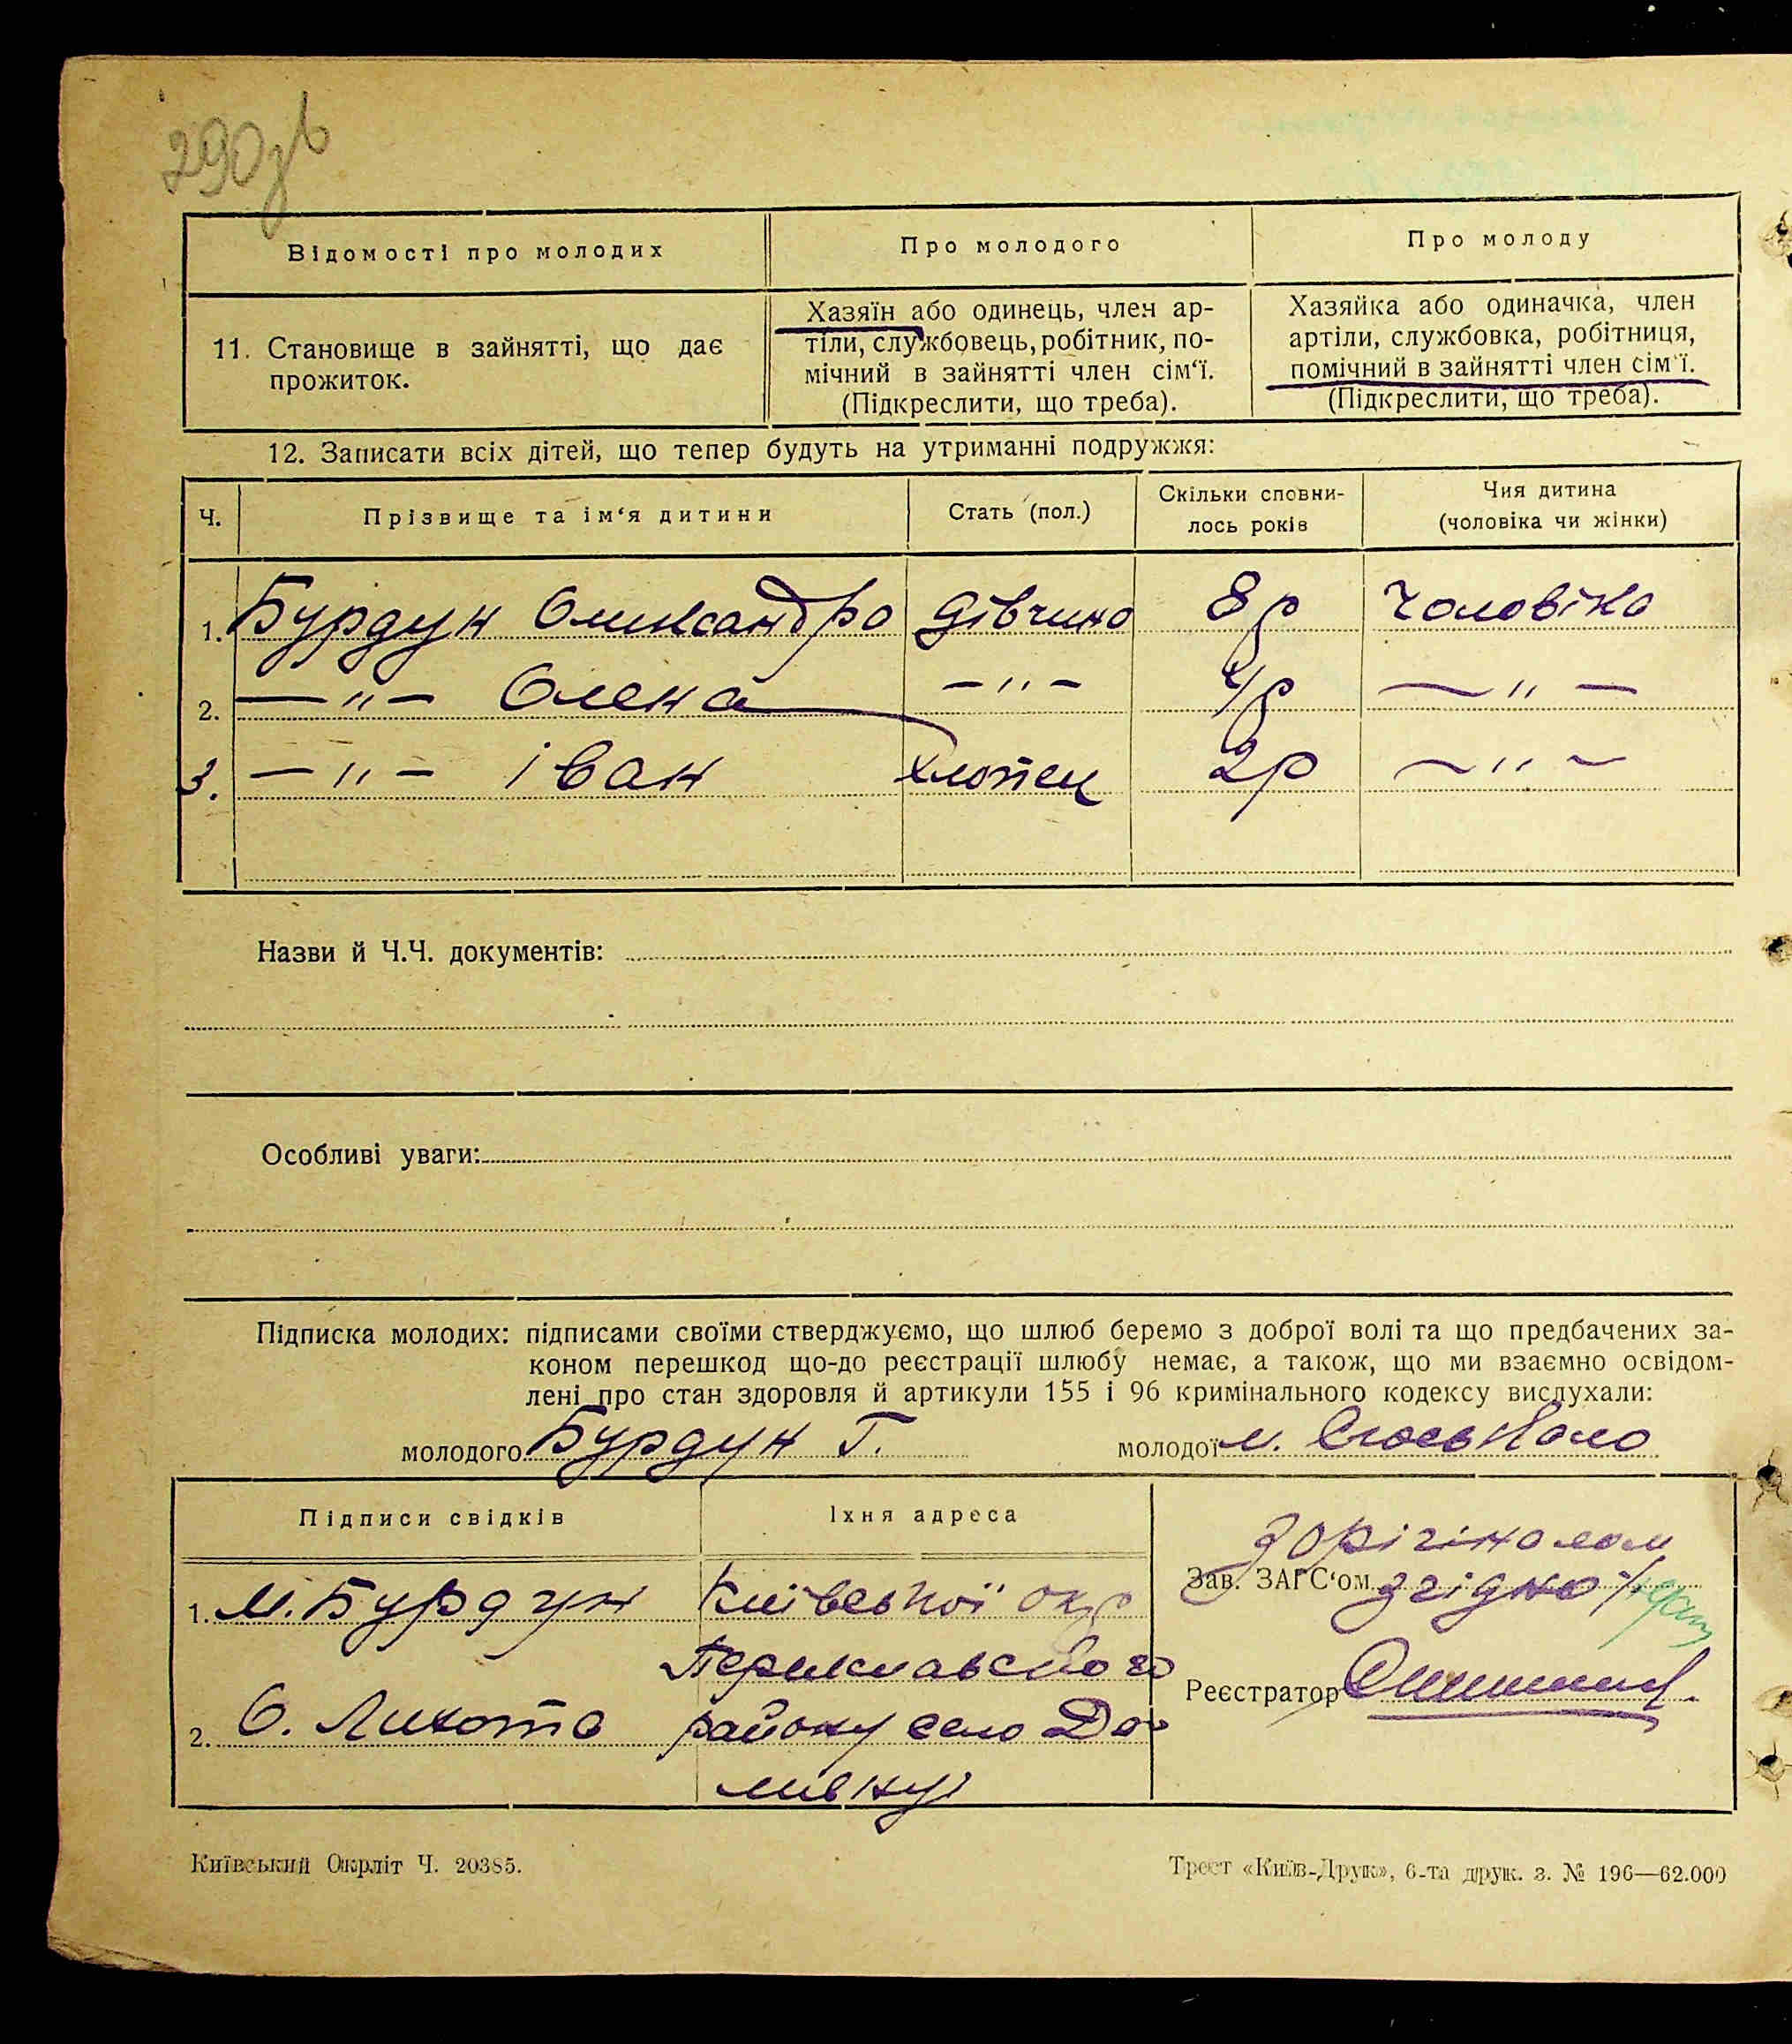 290зв
Відомості про молодих
Про молодого
Про молоду
11. Становище в зайнятті, що дає
прожиток.
Хазяїн або одинець, член ар-
тіли, службовець, робітник, по-
мічний в зайнятті член сім‘ї.
(Підкреслити, що треба).
Хазяйка або одиначка, член
артіли, службовка, робітниця,
помічний в зайнятті член сім‘ї.
(Підкреслити, що треба).
12. Записати всіх дітей, що тепер будуть на утриманні подружжя:
Ч.
Прізвище та ім‘я дитини
Стать (пол.)
Скільки сповни-
лось років
Чия дитина
(чоловіка чи жінки)
1. Бурдун Олександра дівчина 8р Чоловіка
2. —〃— Олена —〃— 4р —〃—
3. —〃— Іван хлопец 2р —〃—
Назви й Ч.Ч. документів:
Особливі уваги:
Підписка молодих: підписами своїми стверджуємо, що шлюб беремо з доброї волі та що предбачених за-
коном перешкод що-до реєстрації шлюбу немає, а також, що ми взаємно освідом-
лені про стан здоровля й артикули 155 і 96 кримінального кодексу вислухали:
молодого Бурдун Г. молодої М.
Підписи свідків
Їхня адреса
1. М. Бурдун Київської окр
Переяславского
2. О. Лихота району село До
мивку
З орігіналом
Зав. ЗАГС‘ом згідно
Реєстратор
Київський Окрліт Ч. 20385.
Трест «Київ-Друк», 6-та друк. з. № 196—62.000